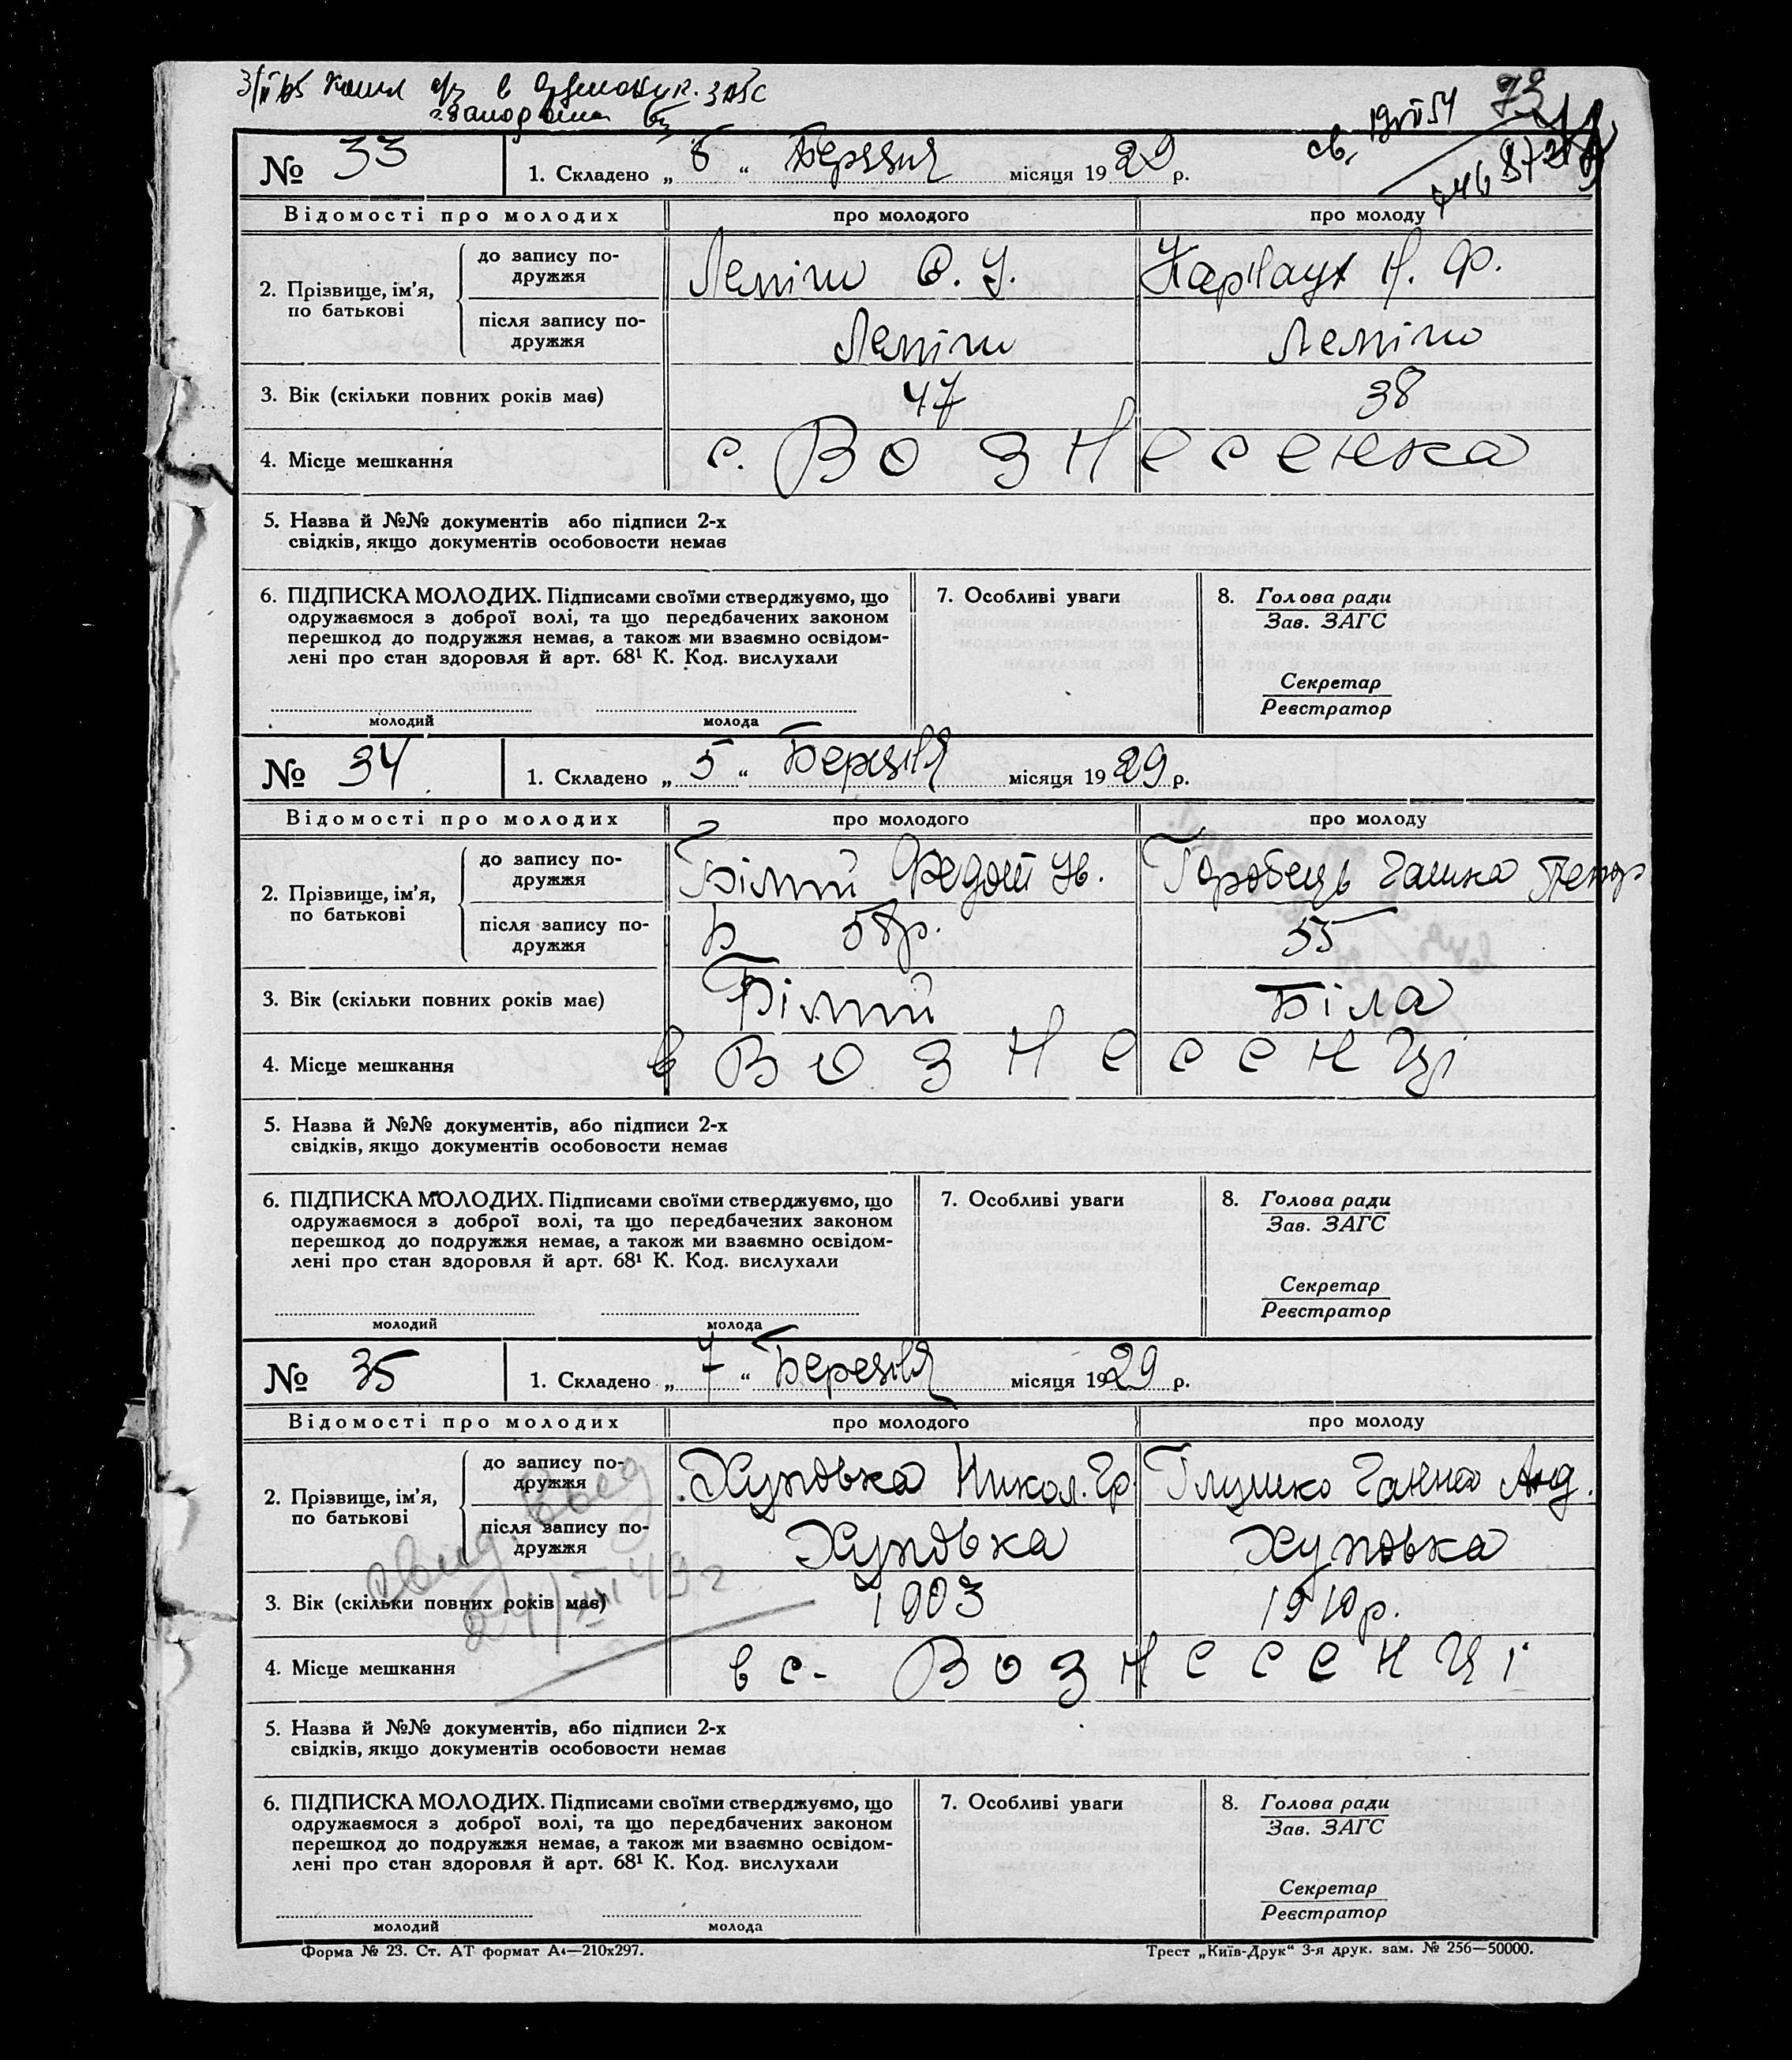 № 33 1. Складено „ 5 “ Березня місяця 1929 р.
Відомості про молодих про молодого про молоду
2. Прізвище, ім’я, по батькові
до запису подружжя Лепіш О. У. Карнаух Н. Ф.
після запису подружжя Лепіш Лепіш
3. Вік (скільки повних років має) 47 38
4. Місце мешкання с. Вознесенка
5. Назва й №№ документів або підписи 2-х
свідків, якщо документів особовости немає
6. ПІДПИСКА МОЛОДИХ. Підписами своїми стверджуємо, що
одружаємося з доброї волі, та що передбачених законом
перешкод до подружжя немає, а також ми взаємно освідом-
лені про стан здоровля й арт. 68¹ К. Код. вислухали
молодий молода
7. Особливі уваги
8. Голова ради
Зав. ЗАГС
Секретар
Реєстратор
№ 34 1. Складено „ 5 “ Березня місяця 1929 р.
Відомості про молодих про молодого про молоду
2. Прізвище, ім’я, по батькові
до запису подружжя Білий Федот Ів. Горобець Ганна Петр
після запису подружжя Б 58р. 55
3. Вік (скільки повних років має) Білий Біла
4. Місце мешкання в Вознесенці
5. Назва й №№ документів, або підписи 2-х
свідків, якщо документів особовости немає
6. ПІДПИСКА МОЛОДИХ. Підписами своїми стверджуємо, що
одружаємося з доброї волі, та що передбачених законом
перешкод до подружжя немає, а також ми взаємно освідом-
лені про стан здоровля й арт. 68¹ К. Код. вислухали
молодий молода
7. Особливі уваги
8. Голова ради
Зав. ЗАГС
Секретар
Реєстратор
№ 35 1. Складено „ 7 “ Березня місяця 1929 р.
Відомості про молодих про молодого про молоду
2. Прізвище, ім’я, по батькові
до запису подружжя Хуповка Никол. Гр Глушко Ганна Анд.
після запису подружжя Хуповка Хуповка
3. Вік (скільки повних років має) 1903 1910р.
4. Місце мешкання в с- Вознесенці
5. Назва й №№ документів, або підписи 2-х
свідків, якщо документів особовости немає
6. ПІДПИСКА МОЛОДИХ. Підписами своїми стверджуємо, що
одружаємося з доброї волі, та що передбачених законом
перешкод до подружжя немає, а також ми взаємно освідом-
лені про стан здоровля й арт. 68¹ К. Код. вислухали
молодий молода
7. Особливі уваги
8. Голова ради
Зав. ЗАГС
Секретар
Реєстратор
Форма № 23. Ст. АТ формат А4—210х297. Трест „Київ-Друк“ 3-я друк. зам. № 256—50000.